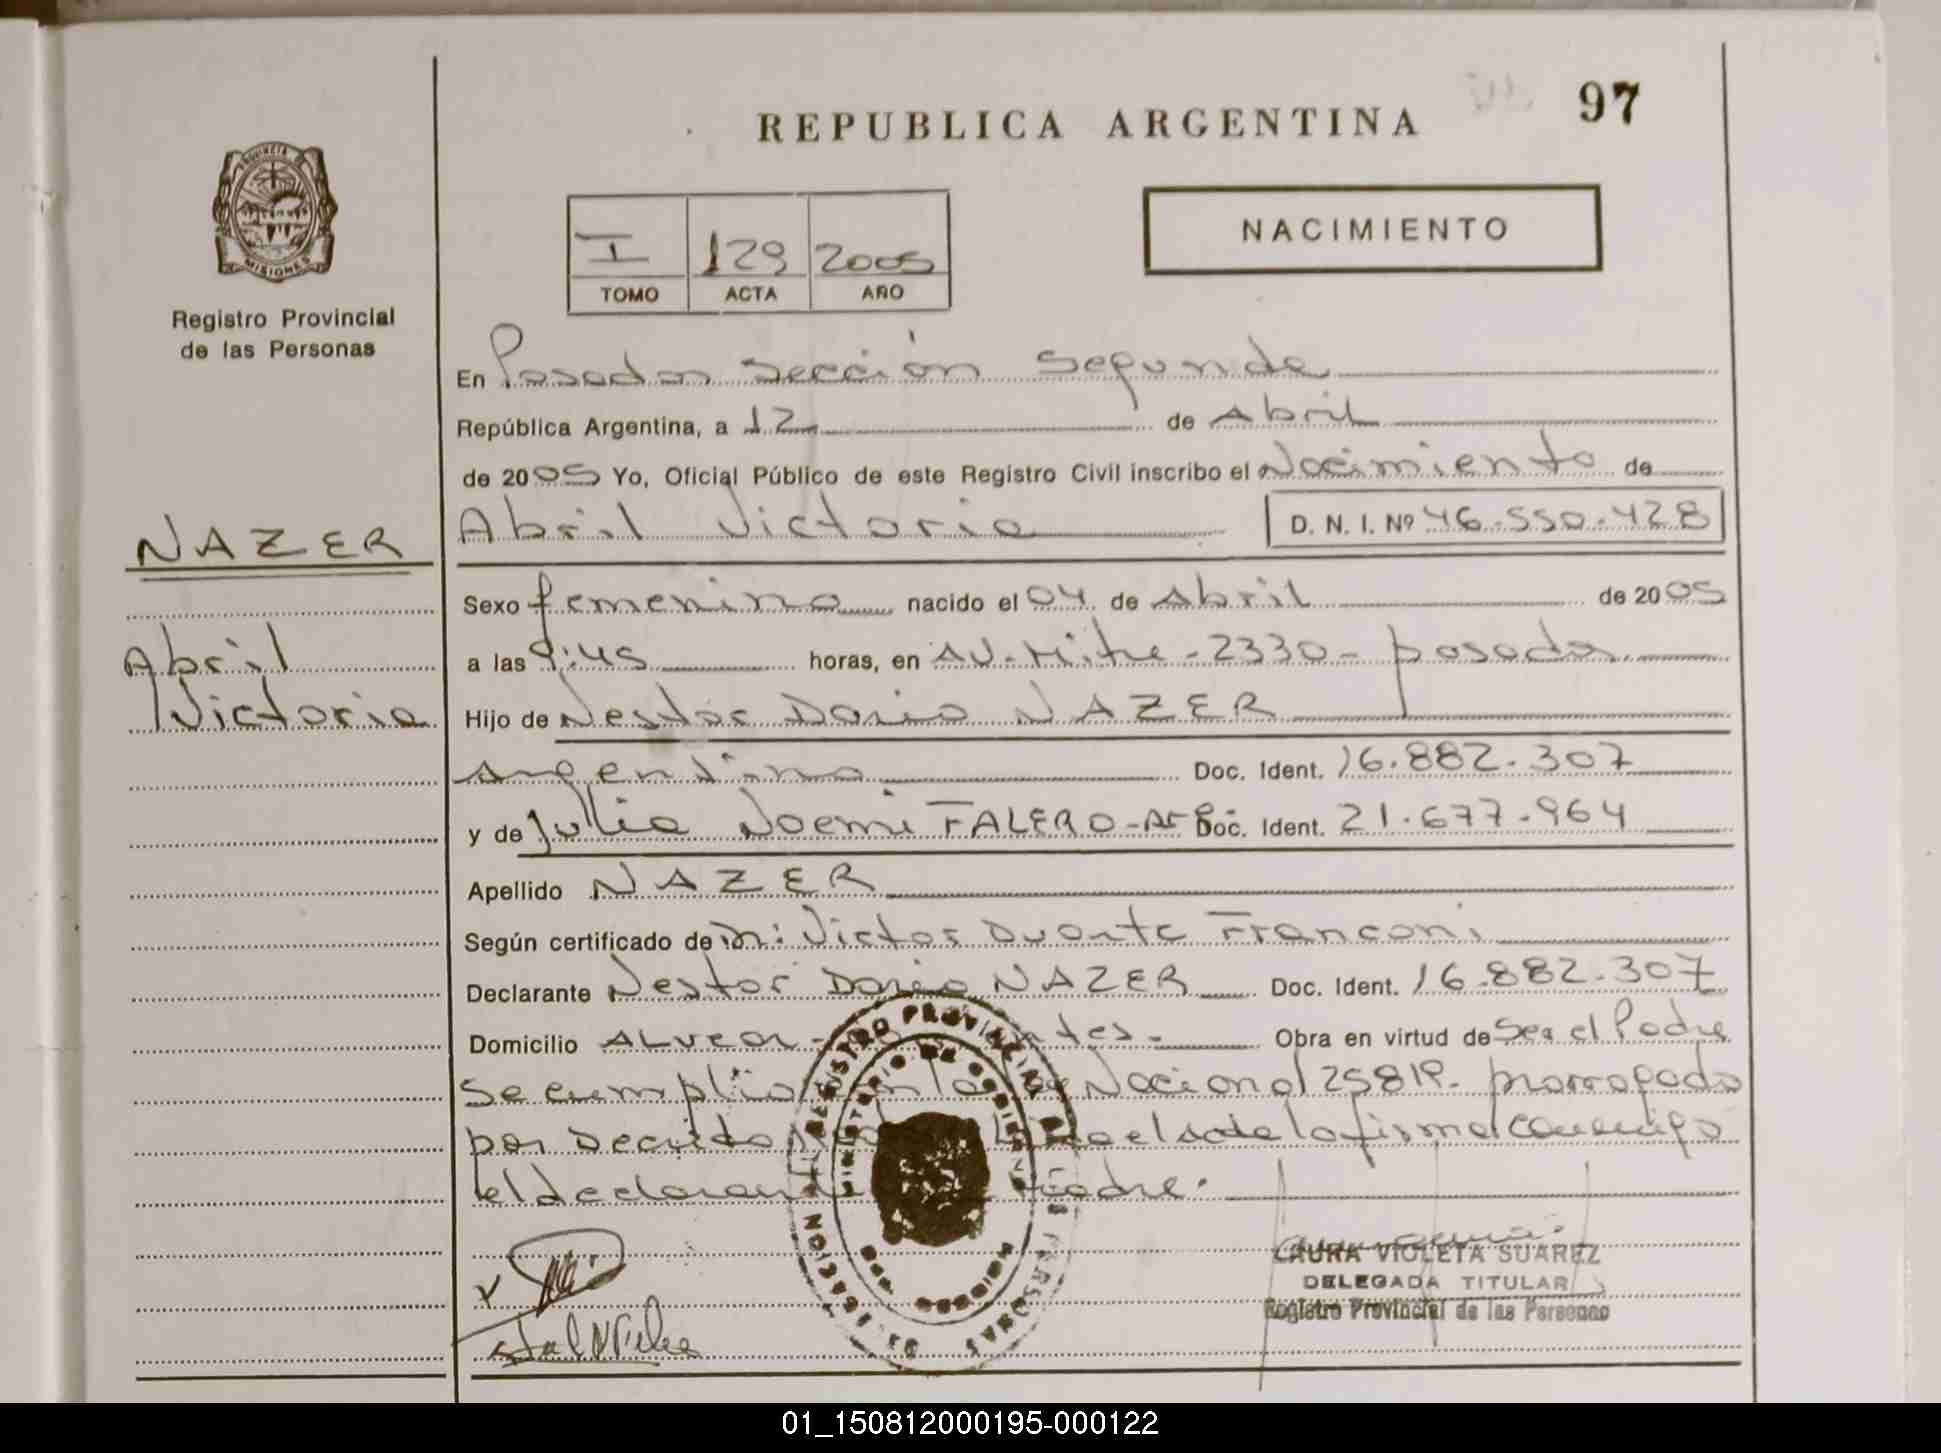 97
REPUBLICA ARGENTINA
PROVINCIA D
MISIONES
Registro Provincial
de las Personas
I 129 2005
TOMO ACTA AÑO
NACIMIENTO
En Posadas sección Segunda
República Argentina, a 12 de Abril
de 2005 Yo, Oficial Público de este Registro Civil inscribo el Nacimiento de
Abril Victoria D. N. I. Nº 46.550.428
NAZER
Abril
Victoria
Sexo femenino nacido el 04 de Abril de 2005
a las 9:45 horas, en Av. Mitre - 2330 - posadas
Hijo de Nestor Dario NAZER
argentino Doc. Ident. 16.882.307
y de Julia Noemi FALERO - Doc. Ident. 21.677.964
Apellido NAZER
Según certificado de Victor Duarte Franconi
Declarante Nestor Dario NAZER Doc. Ident. 16.882.307
Domicilio ALVEAR - Obra en virtud de Ser el Padre
se cumplio Nacional 25819. prorrogada
por Decreto firma conmigo
el declarante Padre.
REGISTRO PROVINCIAL DE LAS PERSONAS
MINISTERIO DE GOBIERNO
MISIONES
LAURA VIOLETA SUAREZ
DELEGADA TITULAR
Registro Provincial de las Personas
01_150812000195-000122